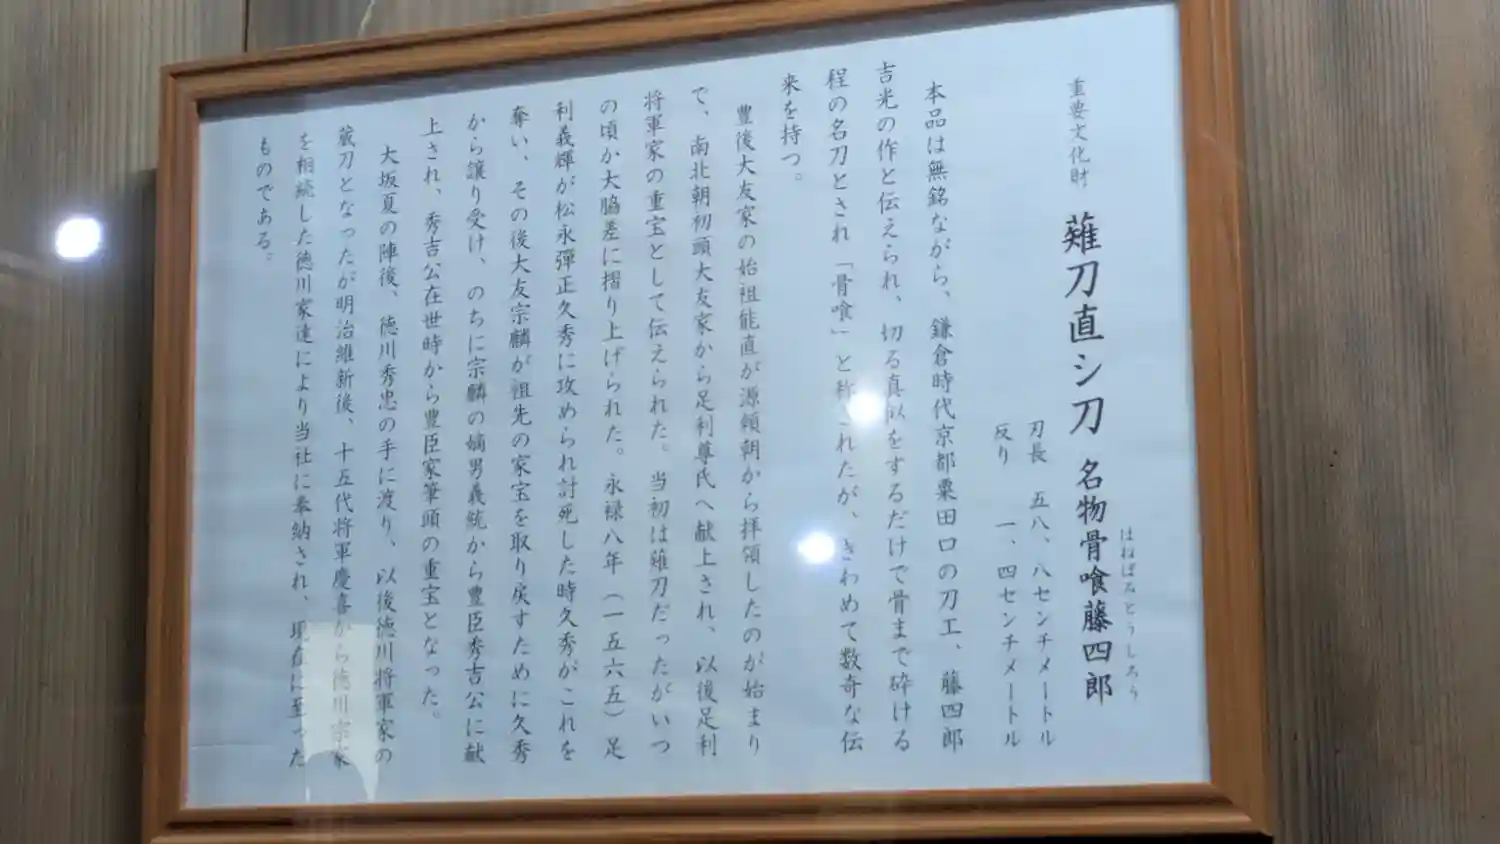 重要文化財　薙刀直シ刀　名物骨喰藤四郎
はねばみとうしろう
刃長　五八、八センチメートル
反り　一、四センチメートル
本品は無銘ながら、鎌倉時代京都粟田口の刀工、藤四郎
吉光の作と伝えられ、切る真似をするだけで骨まで砕ける
程の名刀とされ「骨喰」と称されたが、きわめて数奇な伝
来を持つ。
豊後大友家の始祖能直が源頼朝から拝領したのが始まり
で、南北朝初頭大友家から足利尊氏へ献上され、以後足利
将軍家の重宝として伝えられた。当初は薙刀だったがいつ
の頃か大脇差に摺り上げられた。永禄八年（一五六五）足
利義輝が松永彈正久秀に攻められ討死した時久秀がこれを
奪い、その後大友宗麟が祖先の家宝を取り戻すために久秀
から譲り受け、のちに宗麟の嫡男義統から豊臣秀吉公に献
上され、秀吉公在世時から豊臣家筆頭の重宝となった。
大坂夏の陣後、徳川秀忠の手に渡り、以後徳川将軍家の
蔵刀となったが明治維新後、十五代将軍慶喜から徳川宗家
を相続した徳川家達により当社に奉納され、現在に至った
ものである。